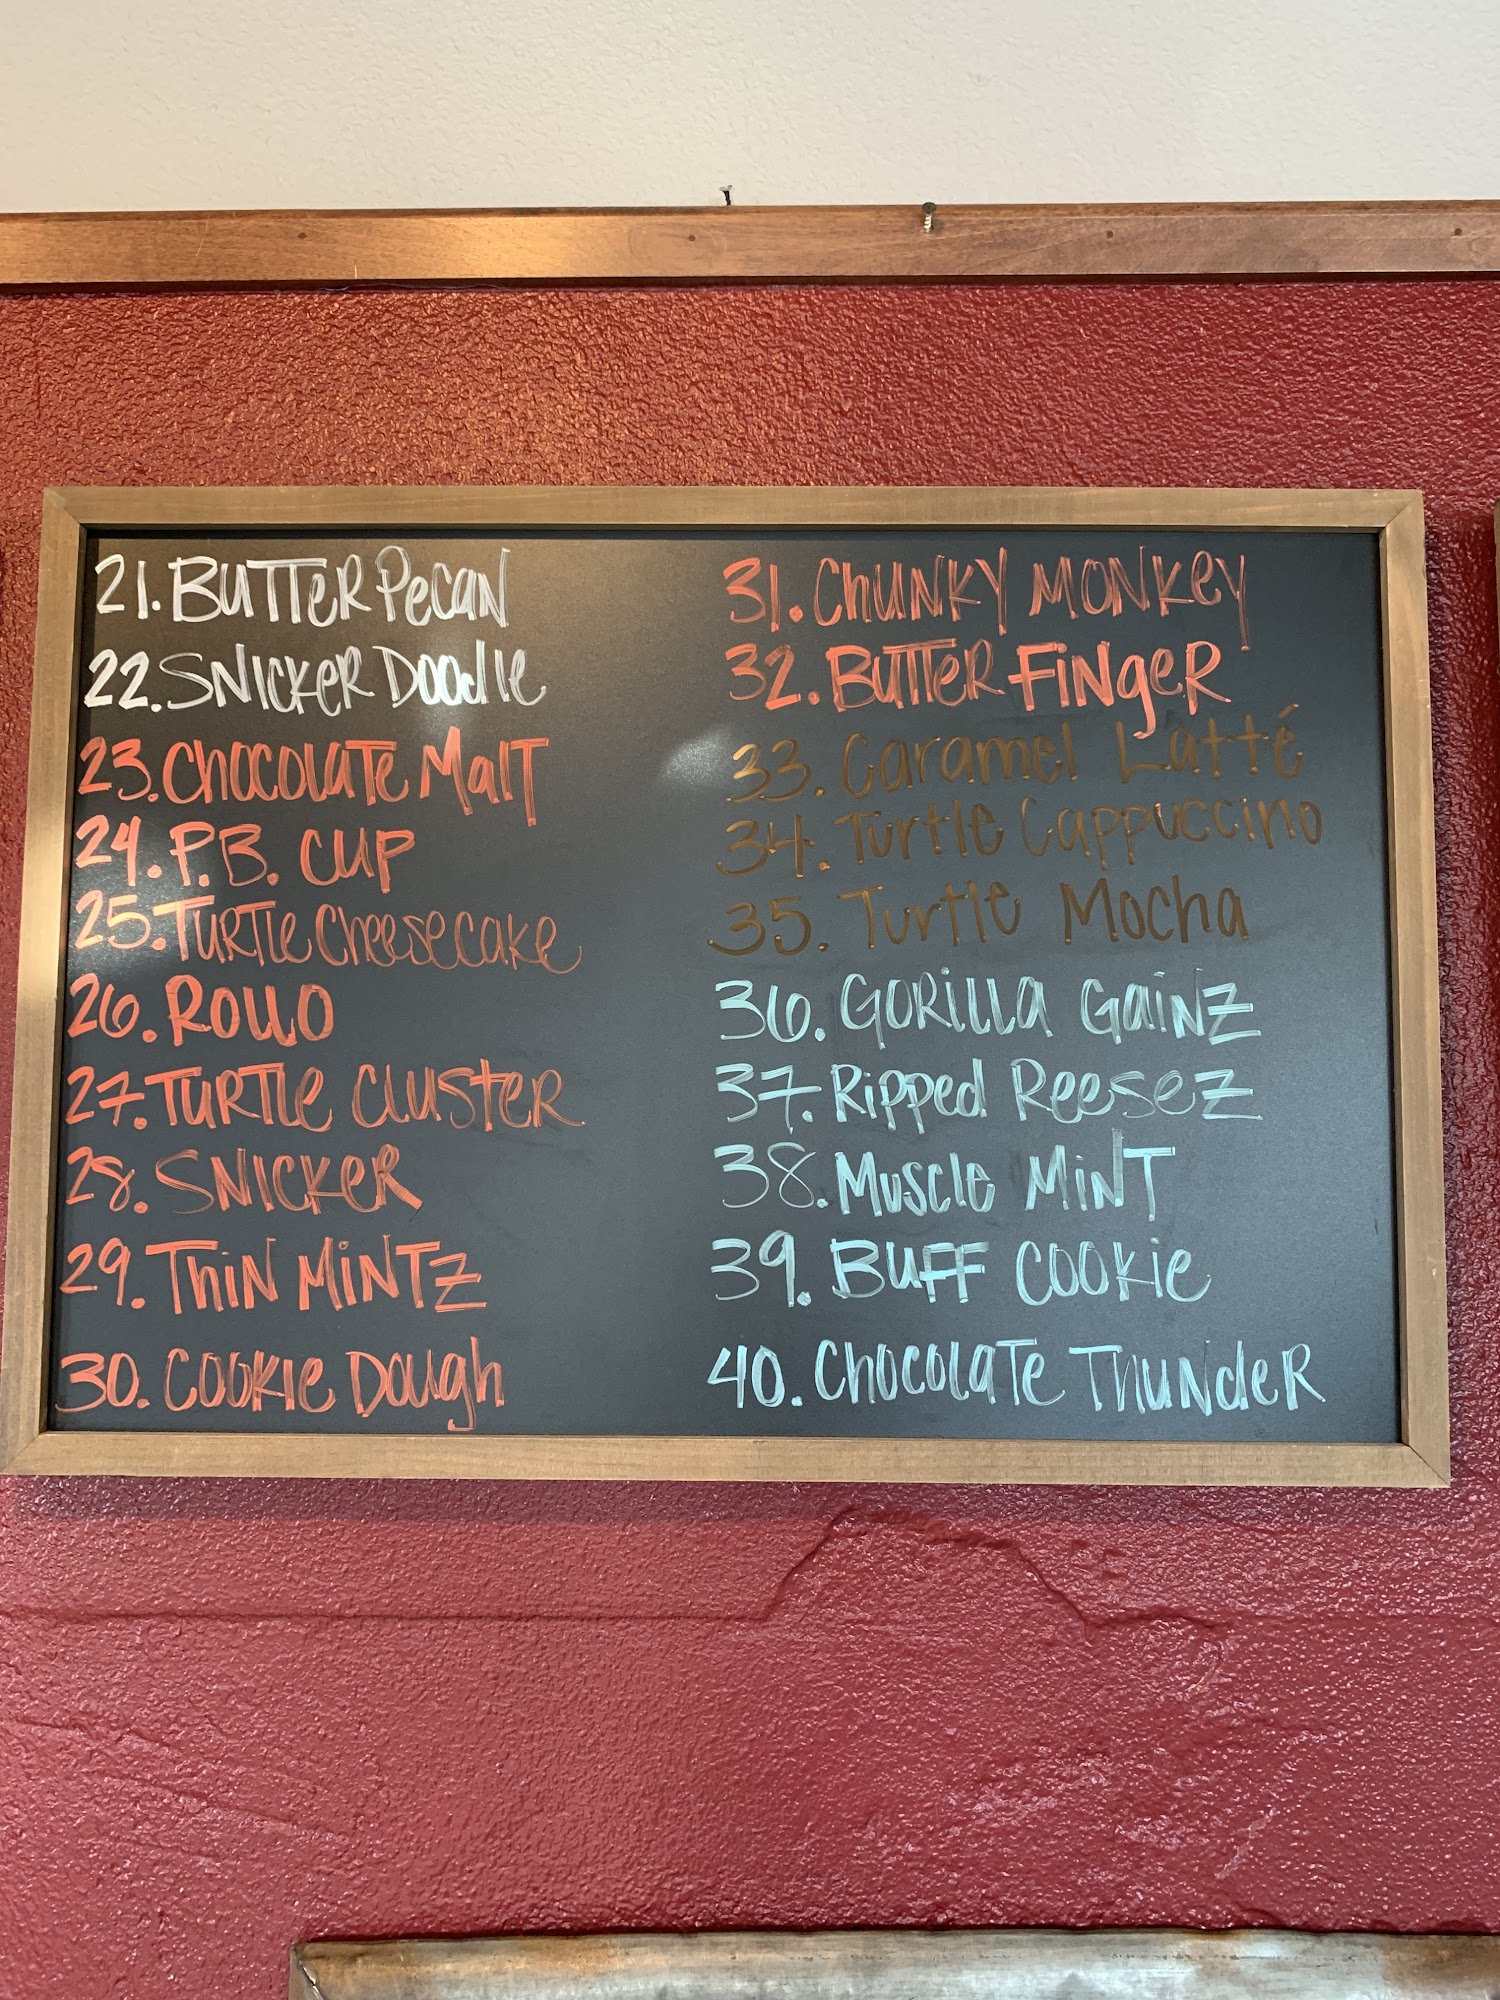 21. BUTTER PECAN
22. SNICKER DOODLE
23. CHOCOLATE MALT
24. P.B. CUP
25. TURTLE CHEESECAKE
26. ROLLO
27. TURTLE CLUSTER
28. SNICKER
29. THIN MINTZ
30. COOKIE DOUGH
31. CHUNKY MONKEY
32. BUTTER FINGER
33. Caramel Latté
34. Turtle Cappuccino
35. Turtle Mocha
36. GORILLA GAINZ
37. RIPPED REESEZ
38. MUSCLE MINT
39. BUFF COOKIE
40. CHOCOLATE THUNDER